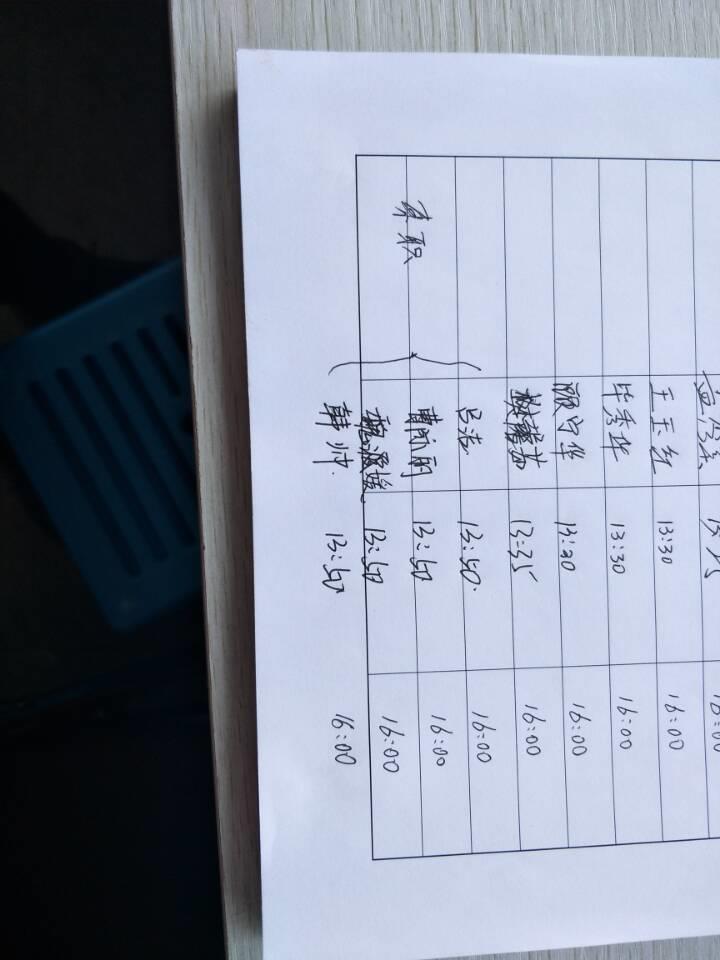 王玉红 13:30 16:00
毕秀华 13:30 16:00
顾守华 13:30 16:00
13:35 16:00
吕洁 13:50 16:00
兼职 曹丽丽 13:50 16:00
13:50 16:00
韩帅 13:50 16:00